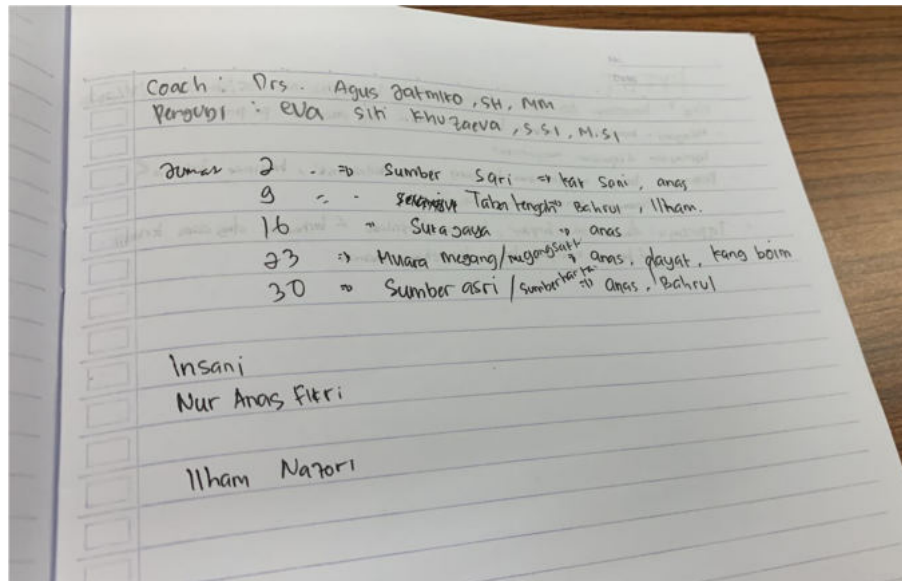 Coach : Drs. Agus Jatmiko, SH, MM
Penguji : eva siti khuzaeva, S.SI, M.SI
Jumat 2 . => Sumber Sari => kak Sani, anas
9 " - Taba tengah => Bahrul, Ilham.
16 " Sukajaya => anas
23 => Muara megang/megangsakti => anas, dayat, kang boim
30 => Sumber asri / sumberkarta => anas, Bahrul
Insani
Nur Anas Fikri
Ilham Nazori